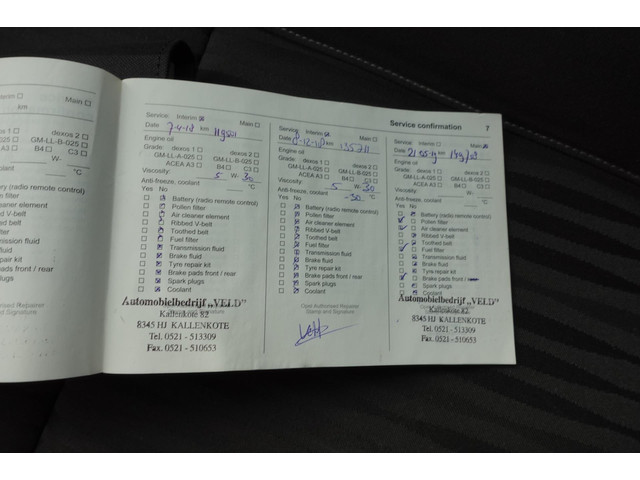 Interim
Main
km
dexos 1
dexos 2
GM-LL-B-025
B4
C3
W-
°C
ry (radio remote control)
n filter
eaner element
d V-belt
ed belt
filter
smission fluid
e fluid
repair kit
e pads front / rear
rk plugs
lant
Service confirmation 7
Service: Interim Main
Date 7-4-18 km
Engine oil
Grade: dexos 1 dexos 2
GM-LL-A-025 GM-LL-B-025
ACEA A3 B4 C3
Viscosity: 5 W- 30
Anti-freeze, coolant °C
Yes No
Battery (radio remote control)
Pollen filter
Air cleaner element
Ribbed V-belt
Toothed belt
Fuel filter
Transmission fluid
Brake fluid
Tyre repair kit
Brake pads front / rear
Spark plugs
Coolant
Automobielbedrijf „VELD"
Kallenkote 82
8345 HJ KALLENKOTE
Tel. 0521 - 513309
Fax. 0521 - 510653
Service: Interim Main
Date km
Engine oil
Grade: dexos 1 dexos 2
GM-LL-A-025 GM-LL-B-025
ACEA A3 B4 C3
Viscosity: 5 W- 30
Anti-freeze, coolant -30 °C
Yes No
Battery (radio remote control)
Pollen filter
Air cleaner element
Ribbed V-belt
Toothed belt
Fuel filter
Transmission fluid
Brake fluid
Tyre repair kit
Brake pads front / rear
Spark plugs
Coolant
Opel Authorised Repairer
Stamp and Signature
Service: Interim Main
Date km
Engine oil
Grade: dexos 1 dexos 2
GM-LL-A-025 GM-LL-B-025
ACEA A3 B4 C3
Viscosity: W-
Anti-freeze, coolant °C
Yes No
Battery (radio remote control)
Pollen filter
Air cleaner element
Ribbed V-belt
Toothed belt
Fuel filter
Transmission fluid
Brake fluid
Tyre repair kit
Brake pads front / rear
Spark plugs
Coolant
Automobielbedrijf „VELD"
Kallenkote 82
8345 HJ KALLENKOTE
Tel. 0521 - 513309
Fax. 0521 - 510653